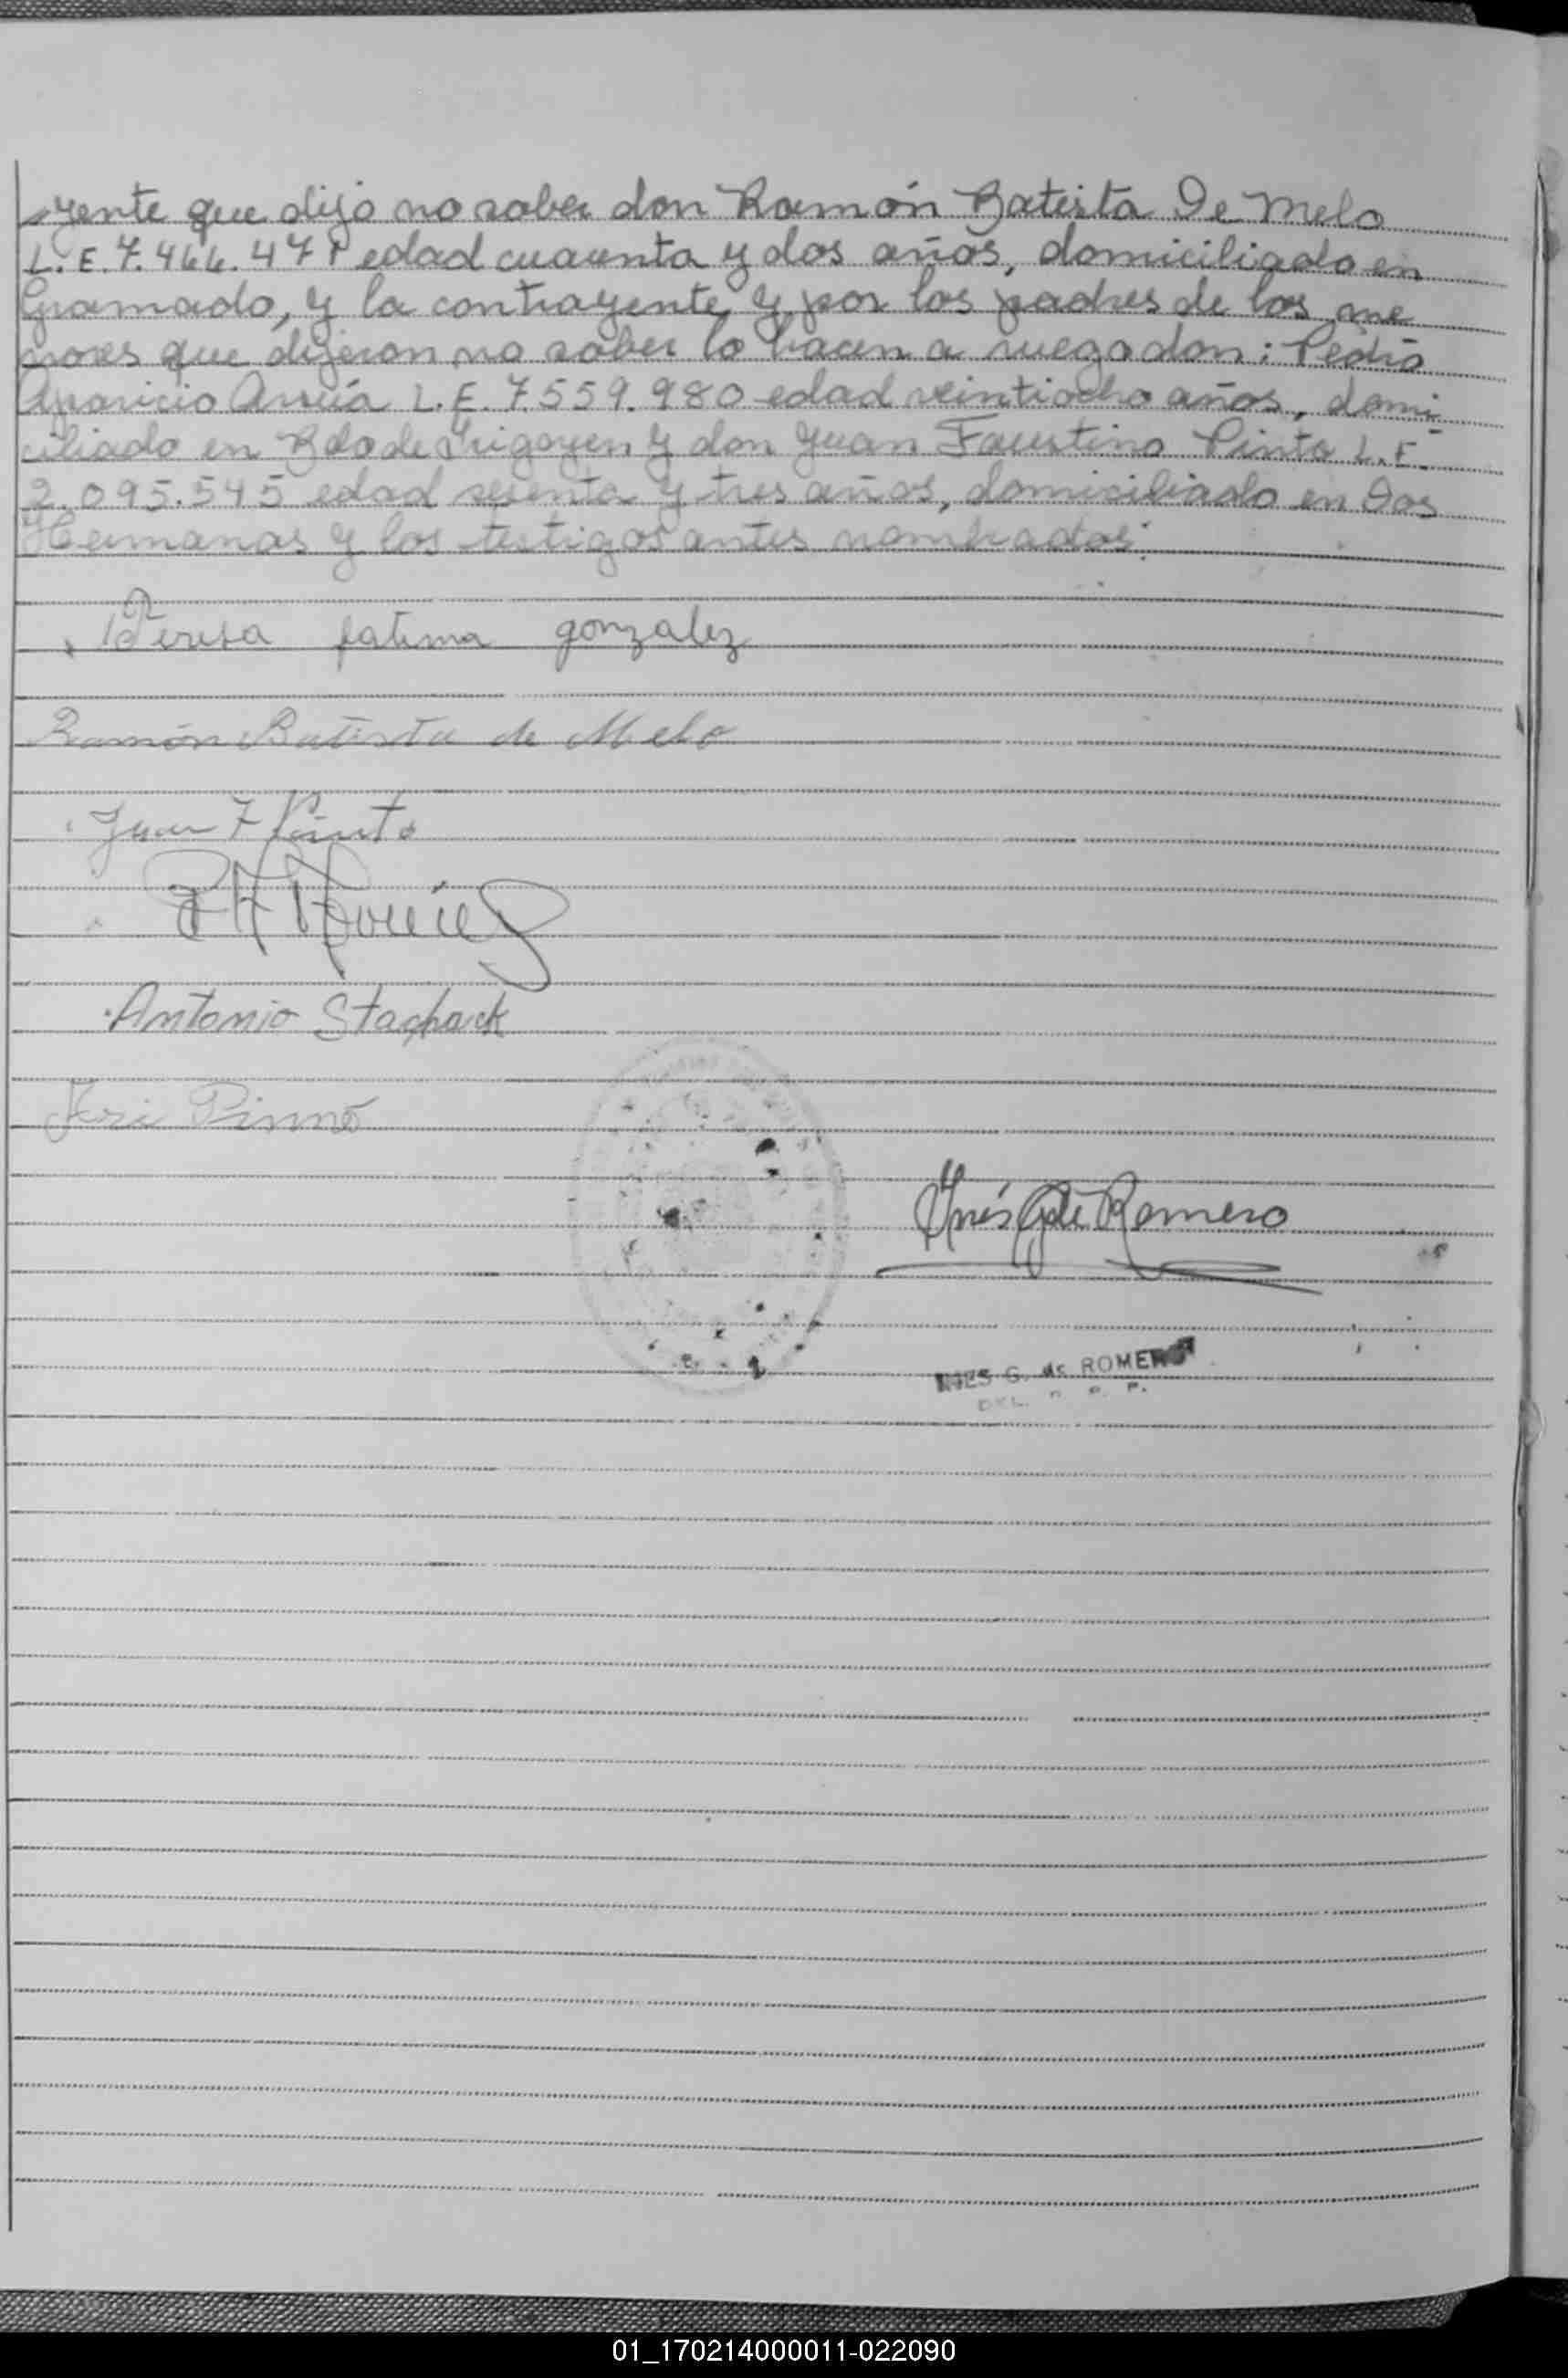 -yente que dijo no saber don Ramón Batista De Melo
L.E. 7.466.471 edad cuarenta y dos años, domiciliado en
Gramado, y la contrayente y por los padres de los me
nores que dijeron no saber lo hacen a ruego don: Pedro
Aparicio L.E. 7.559.980 edad veintiocho años, domi-
ciliado en Bdo de Irigoyen y don Juan Faustino Pinto L.E.
2.095.545 edad sesenta y tres años, domiciliado en Dos
Hermanas y los testigos antes nombrados:
Teresa fatima gonzalez
Ramón Batista de Melo
Juan F Pinto
Antonio
Inés G de Romero
INES G. de ROMERO